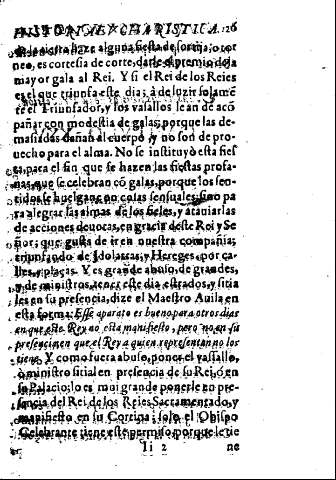 HISTORIA EVCHARISTICA. 126
de la nuestra haze alguna fiesta de sortija, o tor
neo, es cortesia de corte, darle el premio de la
mayor gala al Rei. Y si el Rei de los Reies
es el que triunfa este dia; à de luzir solamē
te el Triunfador, y los vasallos le an de acō
pañar con modestia de galas, porque las de-
masiadas dañan al cuerpo y no son de pro-
uecho para el alma. No se instituyò esta fies
ta para el fin que se hazen las fiestas profa-
nas, que se celebran cō galas, porque los sen-
tidos se huelgan en cosas sensuales; sino pa
ra alegrar las almas de los fieles, y atauiarlas
de acciones deuotas, en gracia deste Rei y Se
ñor; que gusta de ir en nuestra compañia;
triunfando de Idolatras, y Hereges, por ca-
lles, y plaças. Y es grande abuso, de grandes,
y de ministros, tener este dia estrados, y sitia
les en su presencia, dize el Maestro Auila en
esta forma: Esse aparato es bueno para otros dias
en que este Rey no està manifiesto, pero no en su
presencia en que el Rey a quien representan no los
tiene. Y como fuera abuso, poner el vassallo,
ò ministro sitial en presencia de su Rei, ò en
su Palacio; lo es mui grande ponerle en pre-
sencia del Rei de los Reies Sacramentado, y
manifiesto en su Cortina; solo el Obispo
Celebrante tiene este permiso, porque le tie
Ii 2 ne